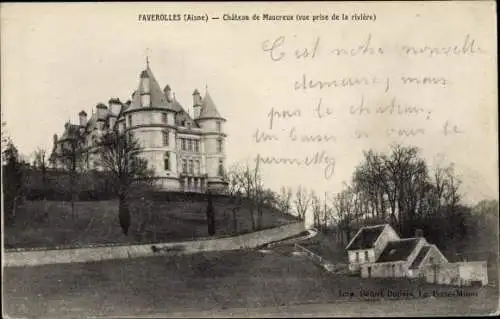 FAVEROLLES (Aisne) — Château de Maucreux (vue prise de la rivière)
C'est notre nouvelle
demeure, mais
pas le château
bien à vous de la
Imp. La Ferté-Milon